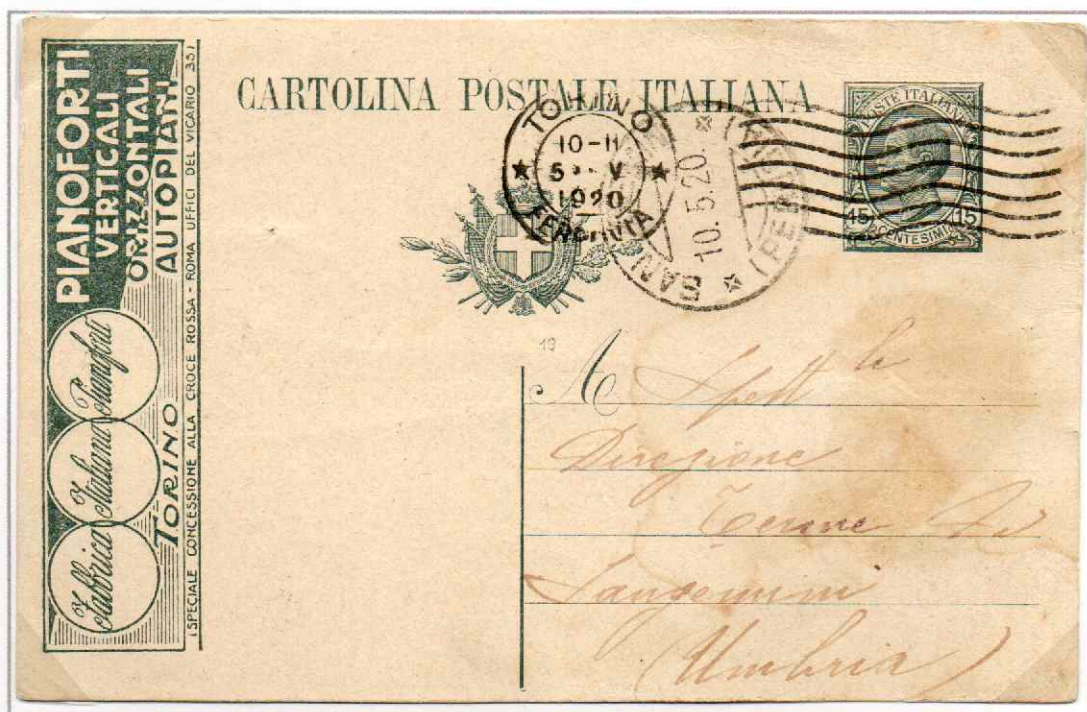 PIANOFORTI
VERTICALI
ORIZZONTALI
AUTOPIANI
Fabbrica Italiana Pianoforti
TORINO
(SPECIALE CONCESSIONE ALLA CROCE ROSSA - ROMA UFFICI DEL VICARIO 35)
CARTOLINA POSTALE ITALIANA
TORINO
10-11
5 V
1920
FERROVIA
10.5.20.
POSTE ITALIANE
15 CENTESIMI 15
19
A Spett le
Direzione
Terme di
Sangemini
(Umbria)